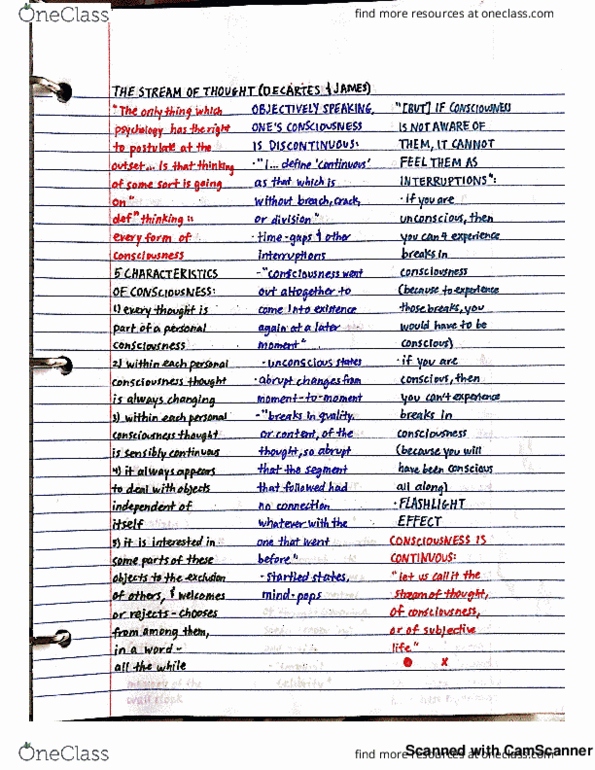 OneClass
find more resources at oneclass.com
THE STREAM OF THOUGHT (DECARTES & JAMES)
"The only thing which
psychology has the right
to postulate at the
outset... is that thinking
of some sort is going
on"
def" thinking =
every form of
consciousness
5 CHARACTERISTICS
OF CONSCIOUSNESS:
1) every thought is
part of a personal
consciousness
2) within each personal
consciousness thought
is always changing
3) within each personal
consciousness thought
is sensibly continuous
4) it always appears
to deal with objects
independent of
itself
5) it is interested in
some parts of these
objects to the exclusion
of others, & welcomes
or rejects - chooses
from among them,
in a word -
all the while
OBJECTIVELY SPEAKING,
ONE'S CONSCIOUSNESS
IS DISCONTINUOUS:
· "I... define 'continuous'
as that which is
without breach, crack,
or division"
· time-gaps & other
interruptions
- "consciousness went
out altogether to
come into existence
again at a later
moment"
- unconscious states
· abrupt changes from
moment-to-moment
- "breaks in quality,
or content, of the
thought, so abrupt
that the segment
that followed had
no connection
whatever with the
one that went
before"
- startled states,
mind-pops
"[BUT] IF CONSCIOUSNESS
IS NOT AWARE OF
THEM, IT CANNOT
FEEL THEM AS
INTERRUPTIONS":
· if you are
unconscious, then
you can't experience
breaks in
consciousness
(because to experience
those breaks, you
would have to be
conscious)
· if you are
conscious, then
you can't experience
breaks in
consciousness
(because you will
have been conscious
all along)
· FLASHLIGHT
EFFECT
CONSCIOUSNESS IS
CONTINUOUS:
"let us call it the
stream of thought,
of consciousness,
or of subjective
life"
x
OneClass
find more resources at oneclass.com
Scanned with CamScanner